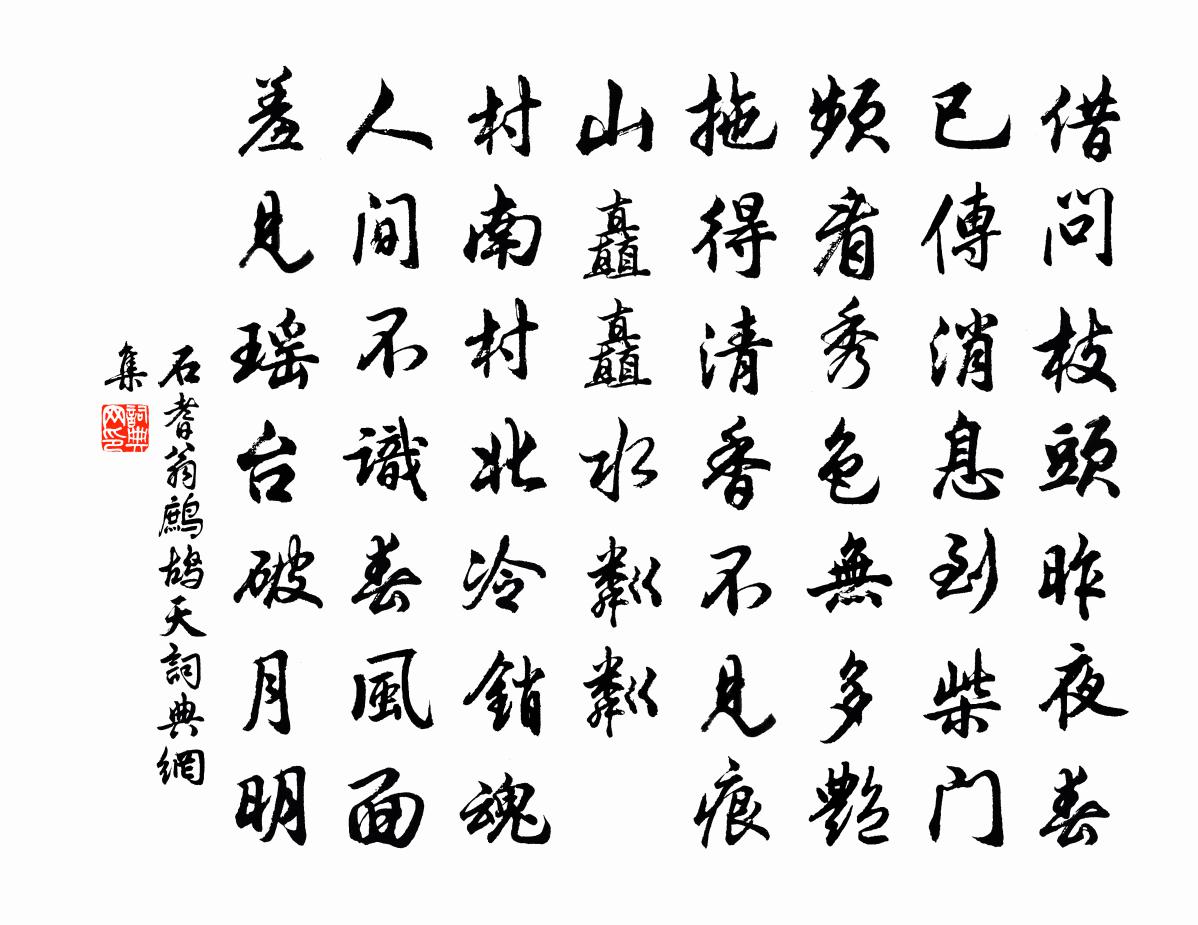 借问枝頭昨夜春
已傳消息到柴门
頻看秀色無多艷
拖得清香不見痕
山矗矗水粼粼
村南村北冷銷魂
人间不識春風面
羞見瑶台破月明
石耆翁鷓鴣天詞典網
集
詞典网印